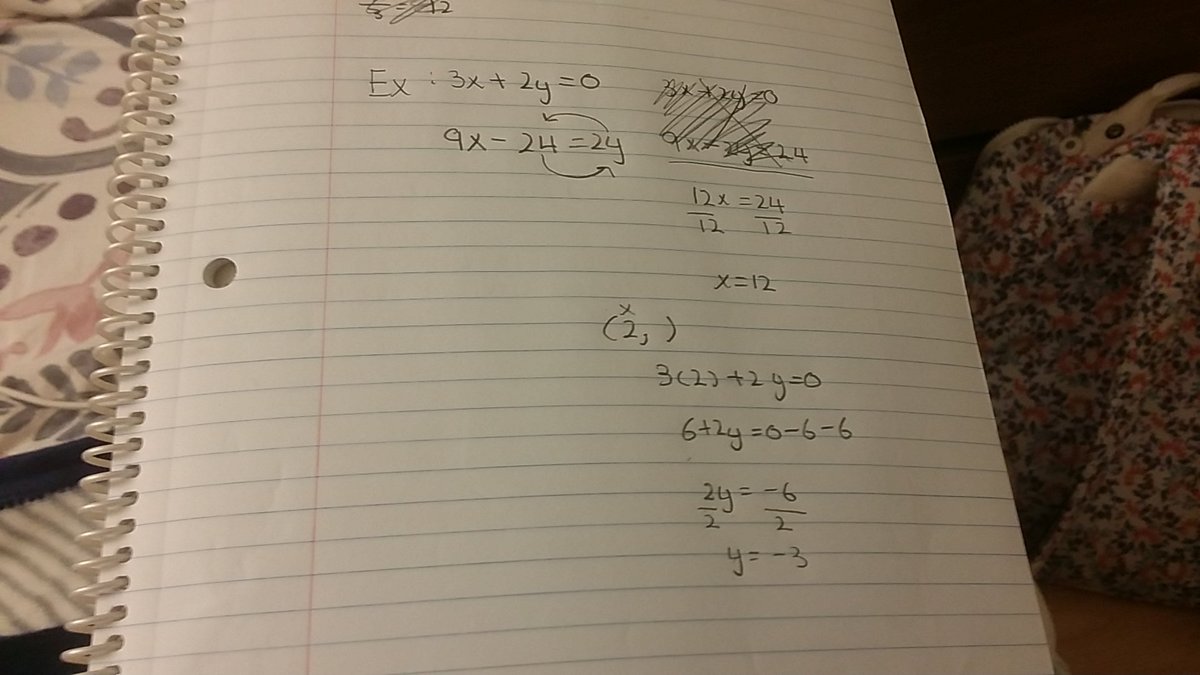 Ex : 3x + 2y = 0
9x - 24 = 2y
12x = 24
12 12
x = 12
x
(2, )
3(2) + 2y = 0
6 + 2y = 0 - 6 - 6
2y = -6
2 2
y = -3